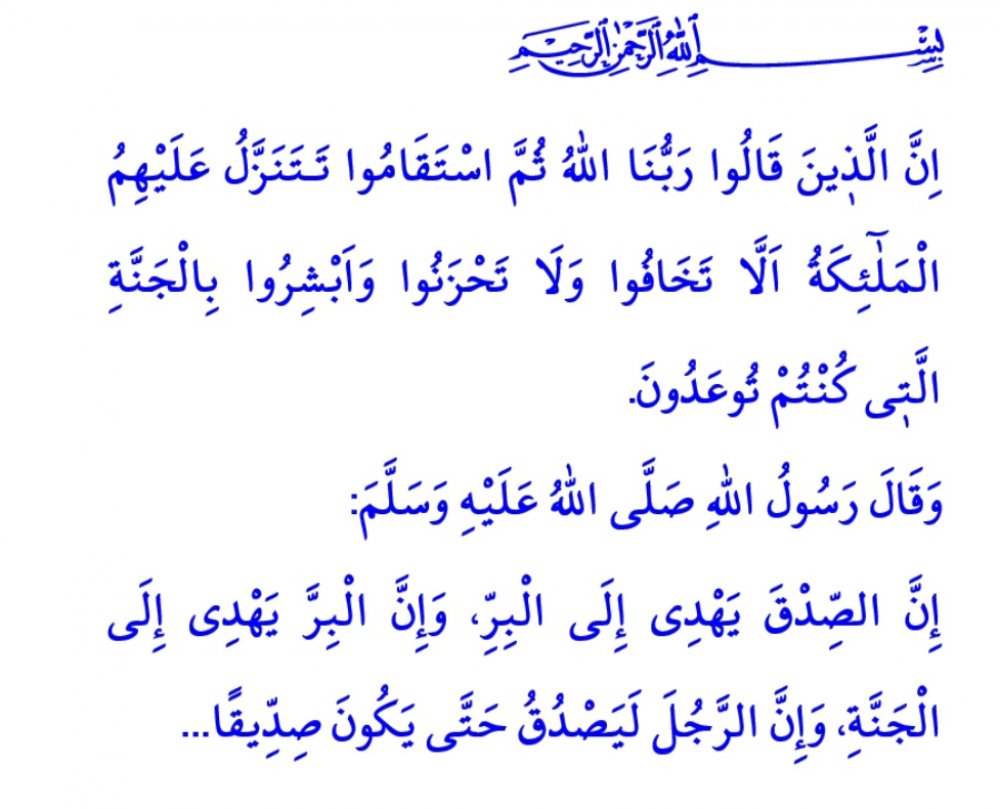 بِسْمِ اللهِ الرَّحْمٰنِ الرَّحِيمِ
اِنَّ الَّذ۪ينَ قَالُوا رَبُّنَا اللهُ ثُمَّ اسْتَقَامُوا تَتَنَزَّلُ عَلَيْهِمُ
الْمَلٰٓئِكَةُ اَلَّا تَخَافُوا وَلَا تَحْزَنُوا وَاَبْشِرُوا بِالْجَنَّةِ
الَّت۪ى كُنْتُمْ تُوعَدُونَ.
وَقَالَ رَسُولُ اللهِ صَلَّى اللهُ عَلَيْهِ وَسَلَّمَ:
إِنَّ الصِّدْقَ يَهْدِى إِلَى الْبِرِّ، وَإِنَّ الْبِرَّ يَهْدِى إِلَى
الْجَنَّةِ، وَإِنَّ الرَّجُلَ لَيَصْدُقُ حَتَّى يَكُونَ صِدِّيقًا...